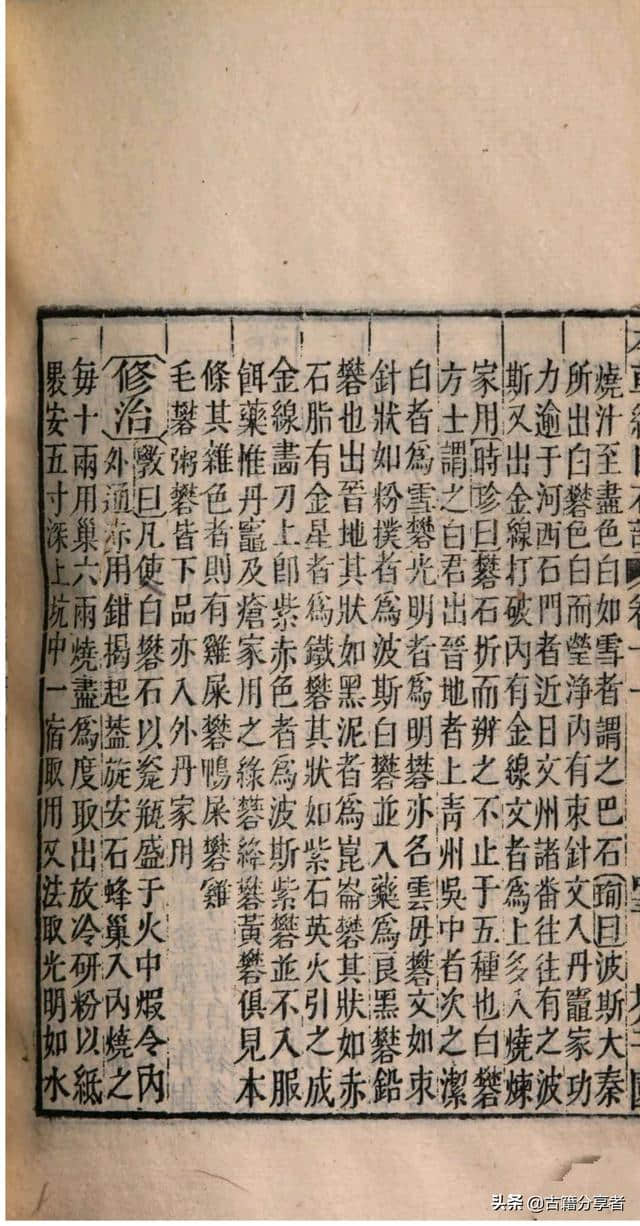 燒汁至盡色白如雪者謂之巴石珣曰波斯大秦
所出白礬色白而瑩淨內有束針文入丹竈家功
力逾于河西石門者近日文州諸番往往有之波
斯又出金線打破內有金線文者爲上多入燒煉
家用時珍曰礬石折而辨之不止于五種也白礬
方士謂之白君出晉地者上青州吳中者次之潔
白者爲雪礬光明者爲明礬亦名雲母礬文如束
針狀如粉撲者爲波斯白礬並入藥爲良黑礬鉛
礬也出晉地其狀如黑泥者爲崑崙礬其狀如赤
石脂有金星者爲鐵礬其狀如紫石英火引之成
金線畵刀上卽紫赤色者爲波斯紫礬並不入服
餌藥惟丹竈及瘡家用之綠礬絳礬黃礬俱見本
條其雜色者則有雞屎礬鴨屎礬雞
毛礬粥礬皆下品亦入外丹家用
修治斆曰凡使白礬石以瓷瓶盛于火中煅令內
外通赤用鉗揭起蓋旋安石蜂巢入內燒之
每十兩用巢六兩燒盡爲度取出放冷研粉以紙
裹安五寸深土坑中一宿取用又法取光明如水
头条 @古籍分享者